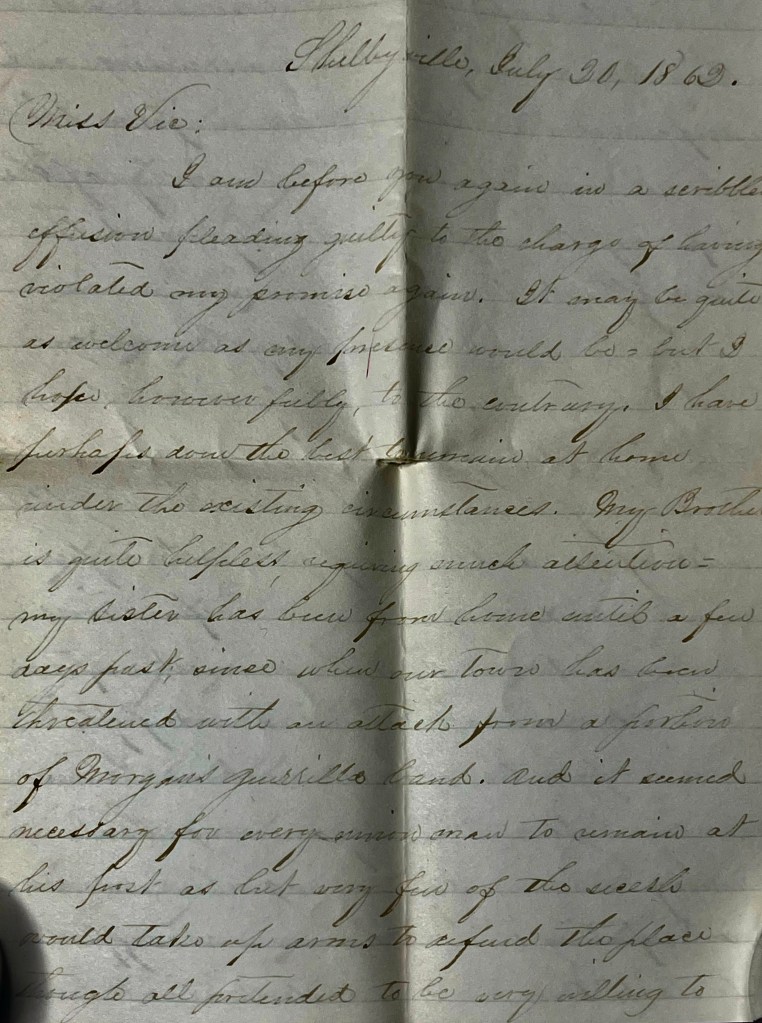 Shelbyville, July 20, 1862.
Miss Vic:
I am before you again in a scribble
effusion pleading guilty to the charge of having
violated my promise again. It may be quite
as welcome as my presence would be - but I
hope, however, to the contrary. I have
perhaps done the best to remain at home
under the existing circumstances. My Brother
is quite helpless, requiring much attention =
my sister has been from home until a few
days past, since when our town has been
threatened with an attack from a portion
of Morgan's guerrilla band. And it seemed
necessary for every union man to remain at
his post as but very few of the secesh
would take up arms to defend the place
though all pretended to be very willing to